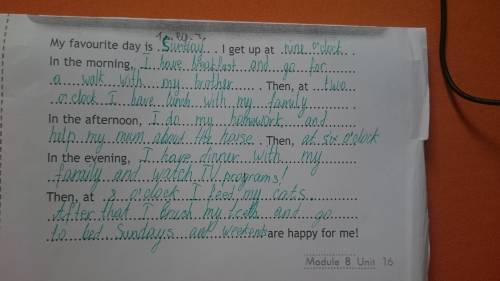 My favourite day is Sunday. I get up at nine o'clock.
In the morning, I have breakfast and go for
a walk with my brother. Then, at two
o'clock I have lunch with my family.
In the afternoon, I do my homework and
help my mum about the house. Then, at six o'clock
In the evening, I have dinner with my
family and watch TV programs!
Then, at 9 o'clock I feed my cats.
After that I brush my teeth and go
to bed. Sundays and weekends are happy for me!
Module 8 Unit 16